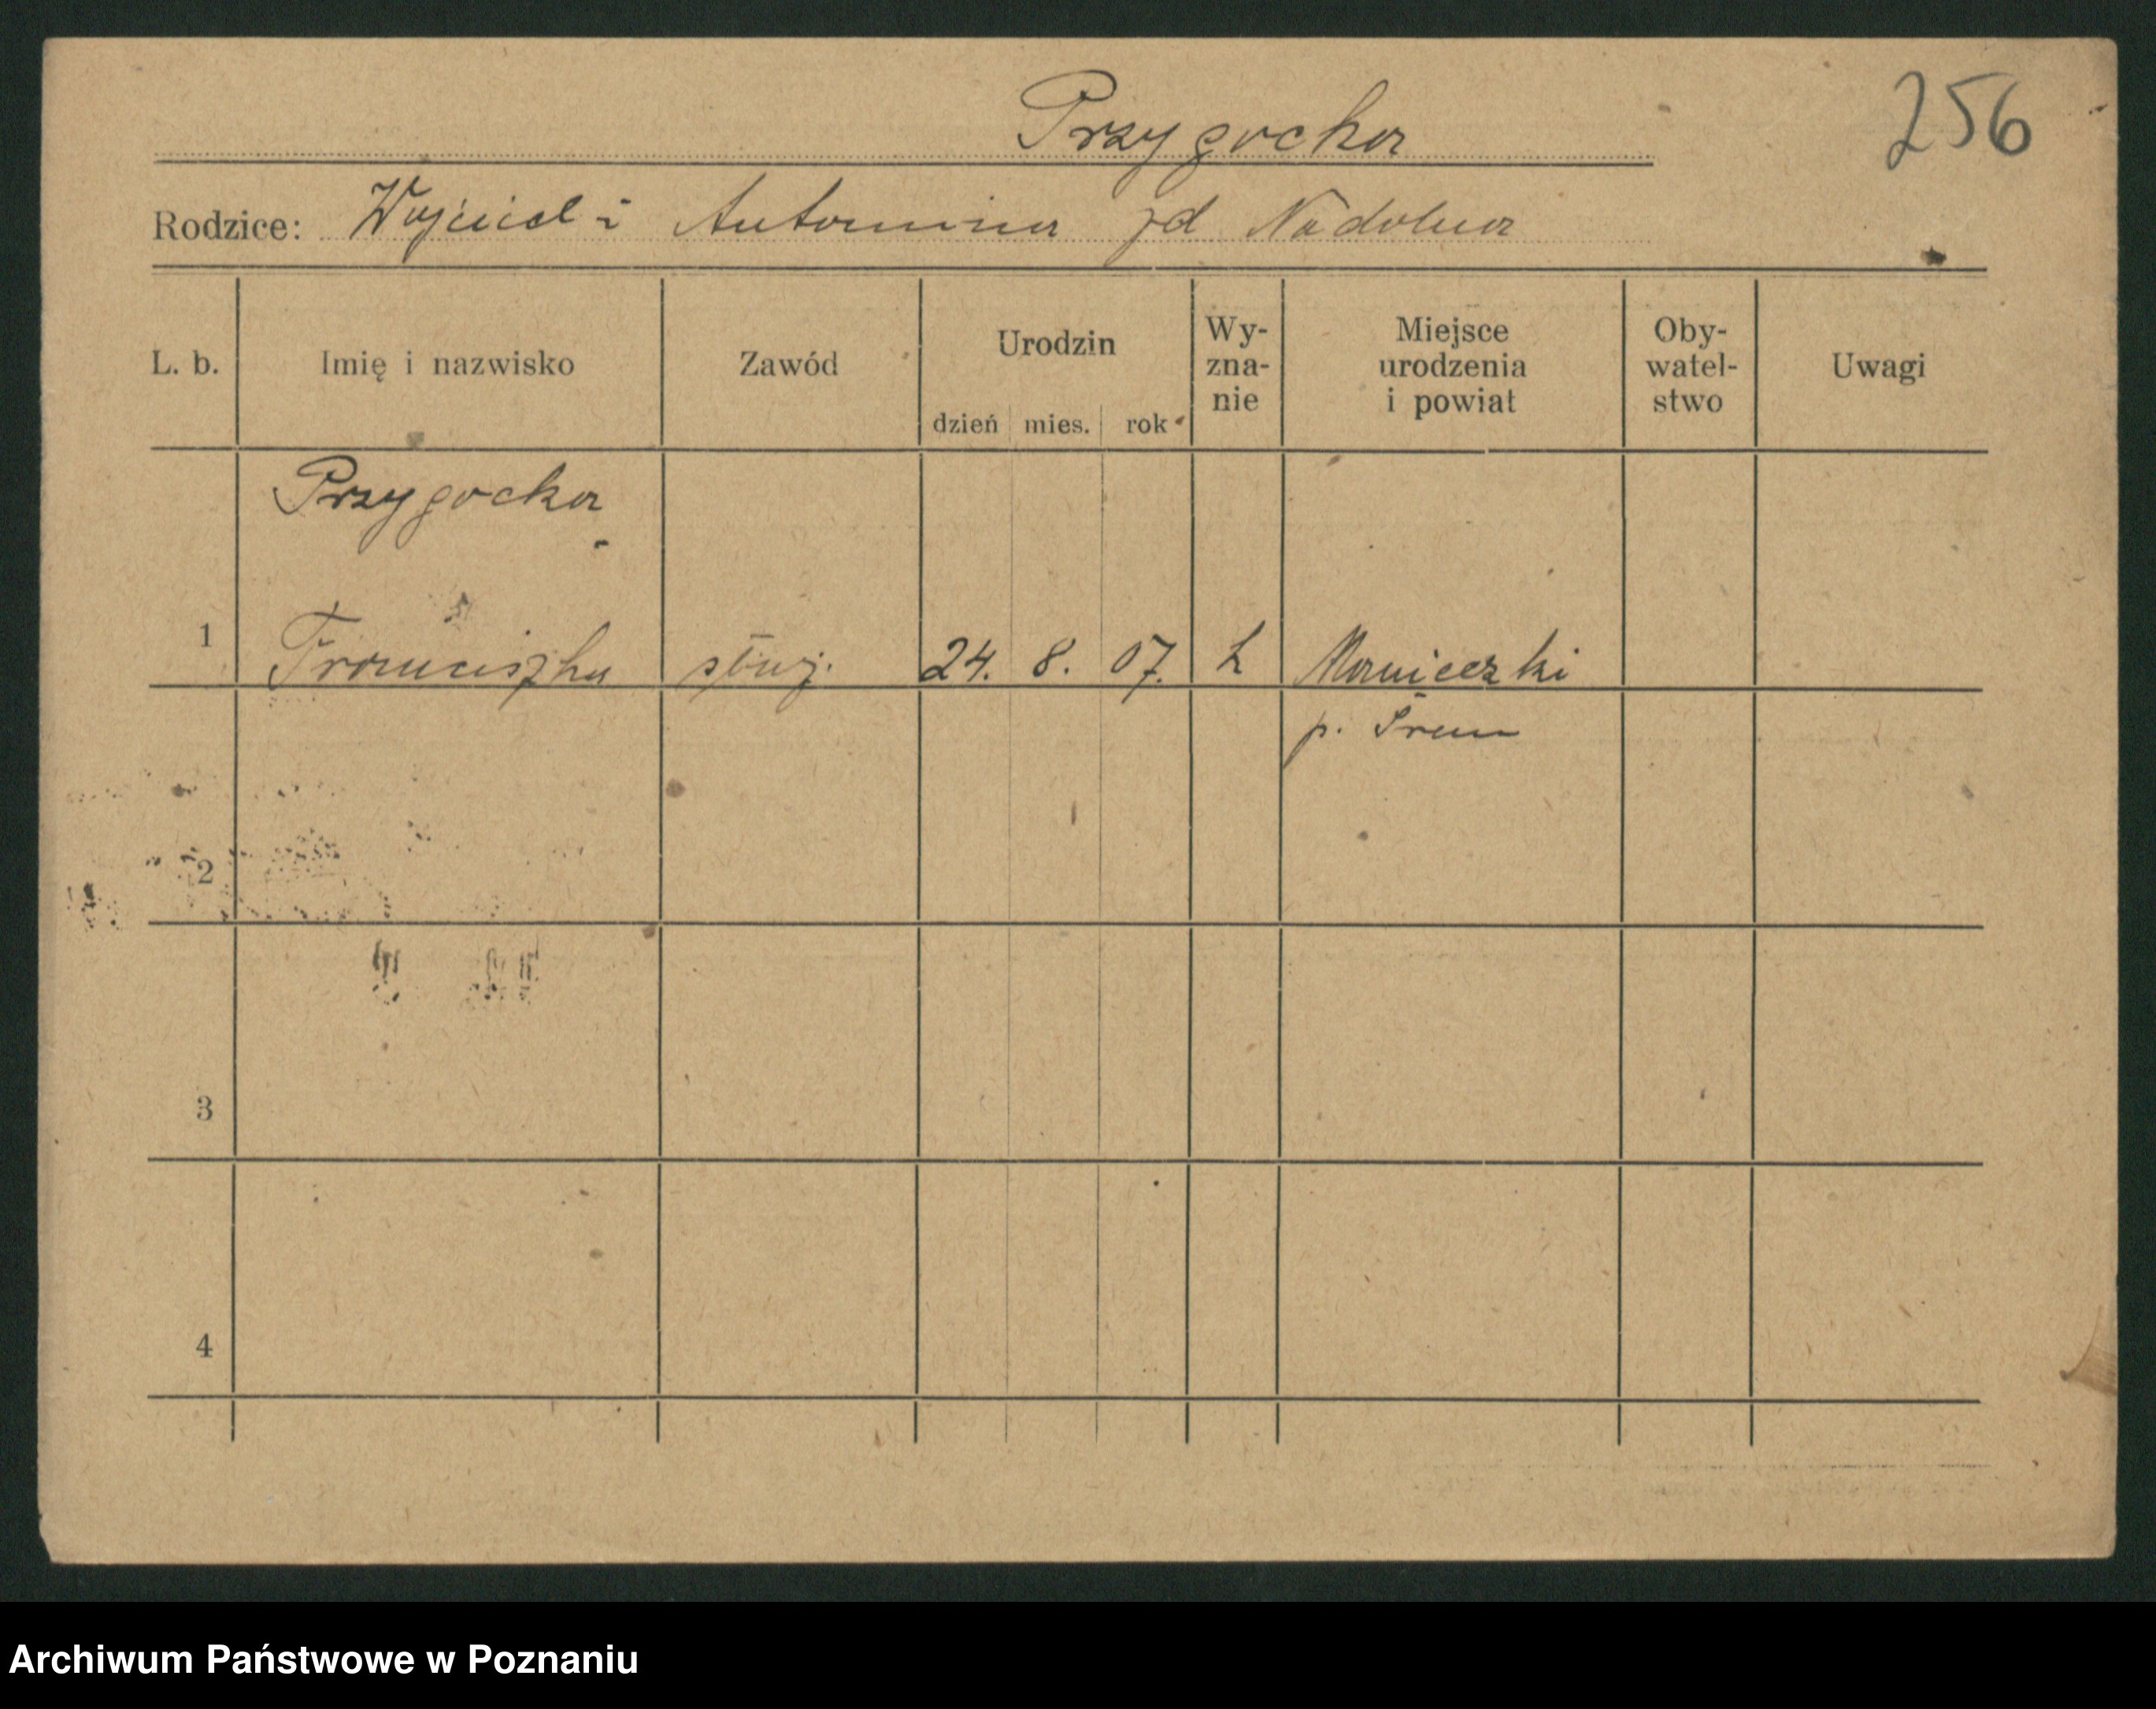 Przygocka
256
Rodzice: Wojciech i Antonina zd Nadolna
L. b. Imię i nazwisko Zawód Urodzin dzień mies. rok Wy-zna-nie Miejsce urodzenia i powiat Oby-watel-stwo Uwagi
Przygocka
1 Franciszka służ. 24. 8. 07. k Manieczki
p. Śrem
2
3
4
Archiwum Państwowe w Poznaniu